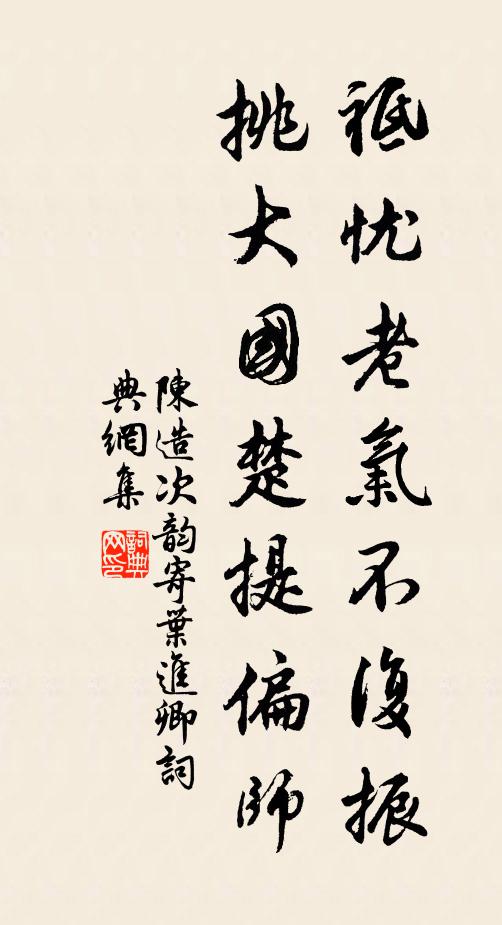 祗忧老氣不復振
挑大國楚提偏師
陳造次韵寄葉進卿詞
典網集
詞典网印